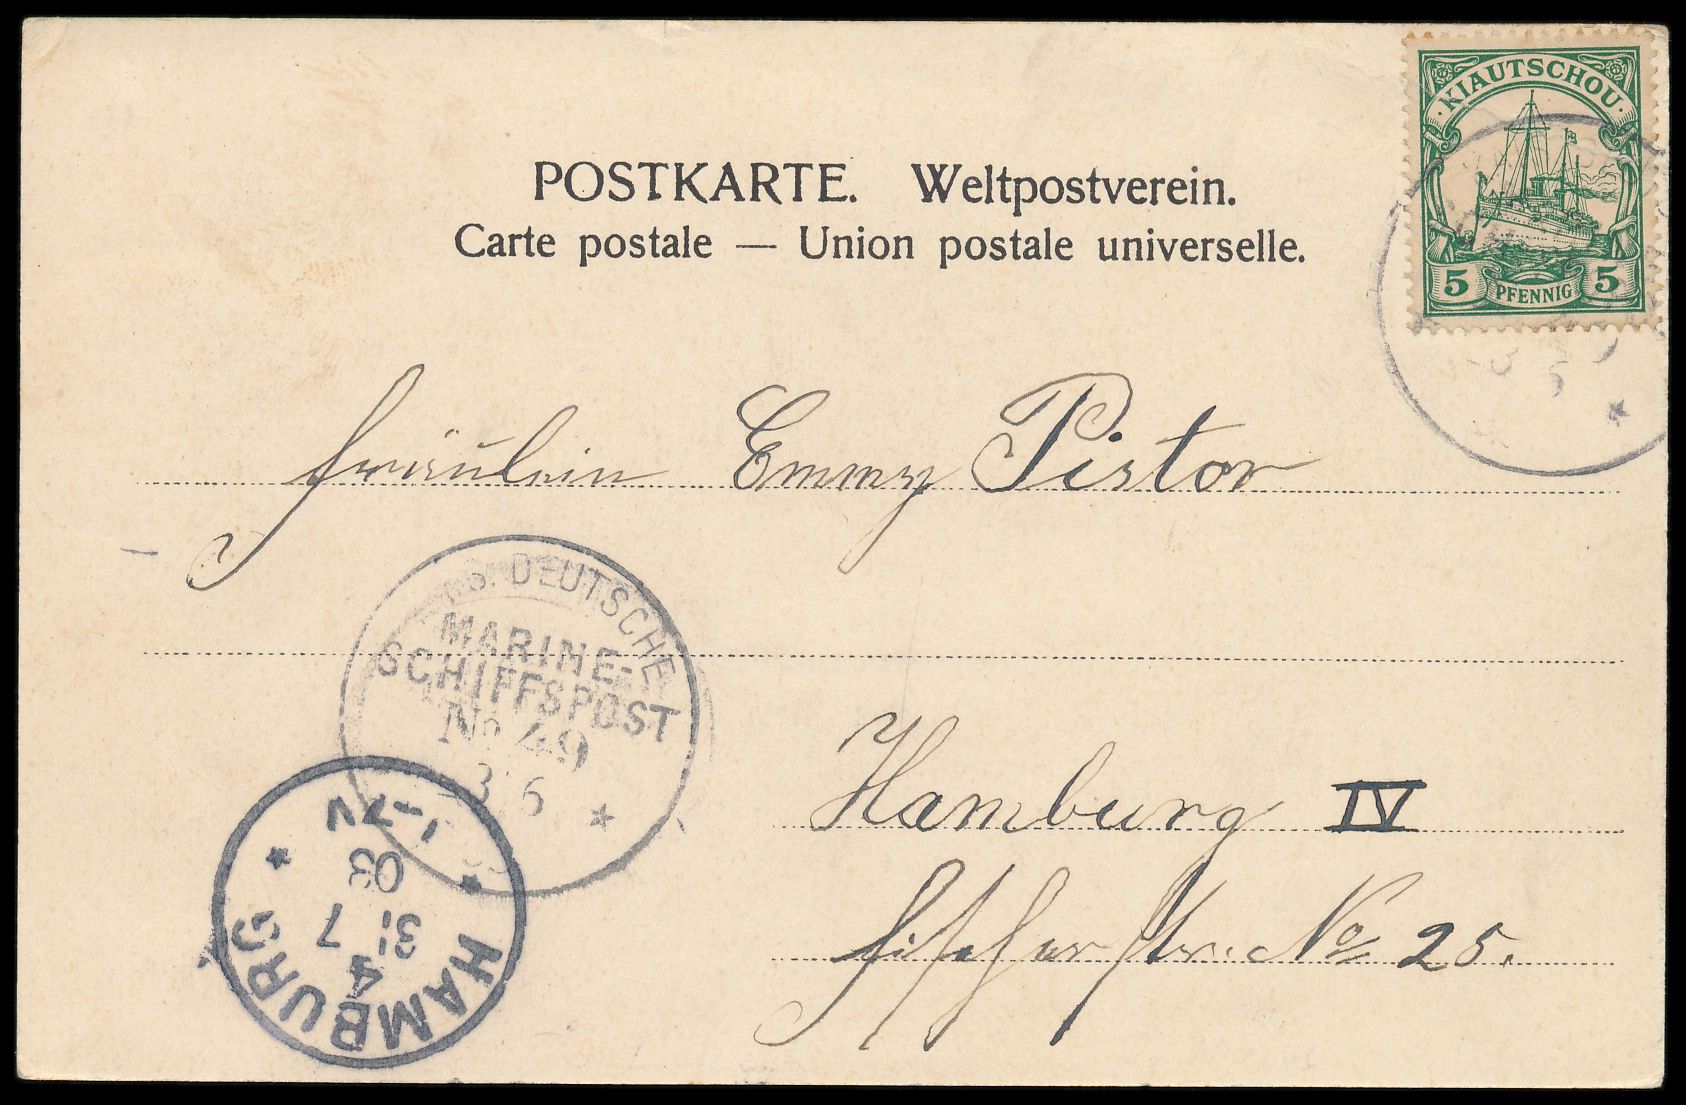 KIAUTSCHOU
5 PFENNIG 5
POSTKARTE. Weltpostverein.
Carte postale — Union postale universelle.
Fräulein Emmy Pistor
DEUTSCHE
MARINE-
SCHIFFSPOST
No 49
3 6
Hamburg IV
str. No 25.
HAMBURG
4
31 7
03
1-7V